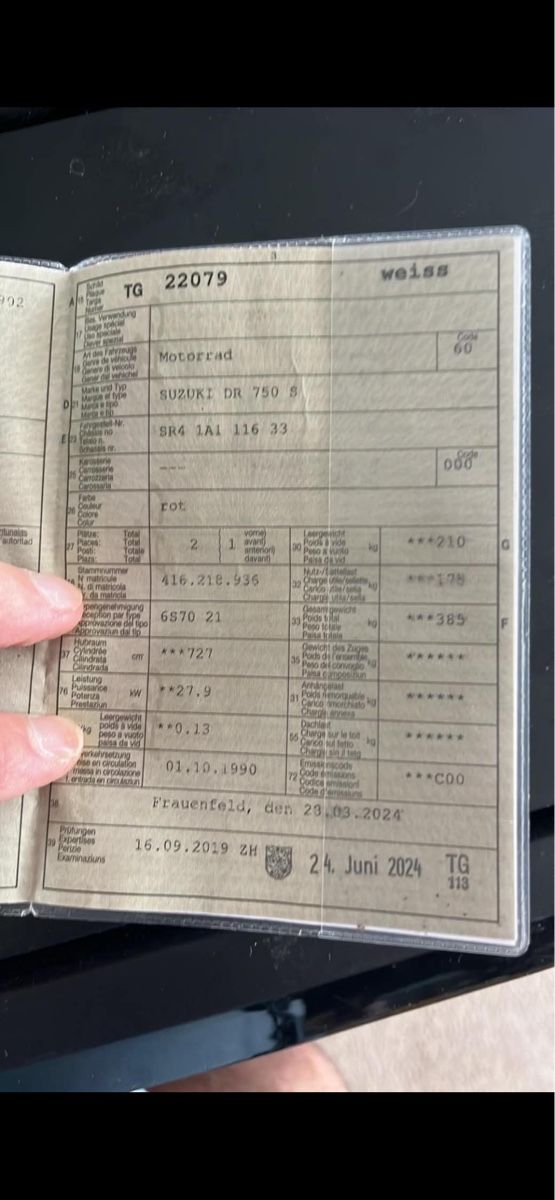 902
3
A 15 Schild Plaque Targa Numer TG 22079 weiss
17 Bes. Verwendung Usage spécial Uso speciale Diever spezial
18 Art des Fahrzeugs Genre de véhicule Genere di veicolo Gener dal vehichel Motorrad Code 60
D 21 Marke und Typ Marque et type Marca e tipo Marca e tip SUZUKI DR 750 S
E 23 Fahrgestell-Nr. Châssis no Telaio n. Schassis nr. SR4 1A1 116 33
25 Karosserie Carrosserie Carrozzeria Carossaria --- Code 000
26 Farbe Couleur Colore Colur rot
27 Plätze: Total Places: Total Posti: Totale Plazs: Total 2 1 vorne) avant) anteriori) davant)
30 Leergewicht Poids à vide Peso a vuoto Paisa da vid kg ***210 G
Stammnummer N° matricule N. di matricola r. da matricla 416.218.936
32 Nutz-/Sattellast Charge utile/sellette Carico utile/sella Chargia utila/sella kg ***175
pengenehmigung ception par type pprovazione del tipo pprovaziun dal tip 6S70 21
33 Gesamtgewicht Poids total Peso totale Paisa totala kg ***385 F
37 Hubraum Cylindrée Cilindrata Cilindrada cm³ ***727
35 Gewicht des Zuges Poids de l'ensemble Peso del convoglio Paisa cumposiziun kg ******
76 Leistung Puissance Potenza Prestaziun kW **27.9
31 Anhängelast Poids remorquable Carico rimorchiato Chargia annexa kg ******
/kg Leergewicht poids à vide peso a vuoto paisa da vid **0.13
55 Dachlast Charge sur le toit Carico sul tetto Chargia sin il tetg kg ******
verkehrsetzung ise en circulation messa in circolazione . entrada en circulaziun 01.10.1990
72 Emissionscode Code émissions Codice emissioni Code d'emissiuns ***C00
38 Frauenfeld, den 23.03.2024
39 Prüfungen Expertises Perizie Examinaziuns 16.09.2019 ZH 24. Juni 2024 TG 113